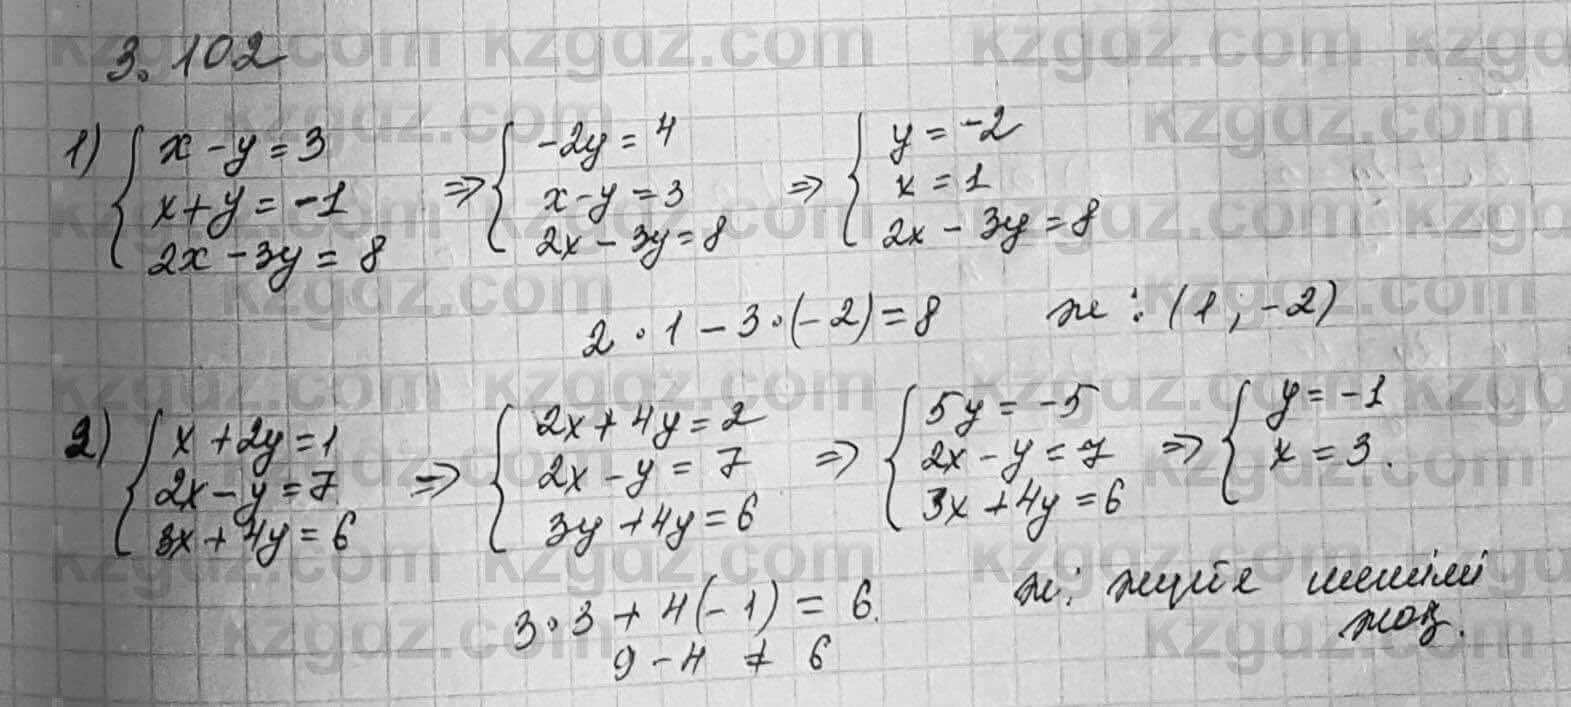 3.102
1) { x - y = 3 ; x + y = -1 ; 2x - 3y = 8 => { -2y = 4 ; x - y = 3 ; 2x - 3y = 8 => { y = -2 ; x = 1 ; 2x - 3y = 8
2 · 1 - 3 · (-2) = 8 ж: (1; -2)
2) { x + 2y = 1 ; 2x - y = 7 ; 3x + 4y = 6 => { 2x + 4y = 2 ; 2x - y = 7 ; 3y + 4y = 6 => { 5y = -5 ; 2x - y = 7 ; 3x + 4y = 6 => { y = -1 ; x = 3.
3 · 3 + 4(-1) = 6. ж: жүйе шешімі
9 - 4 ≠ 6 жоқ.
kzgdz.com